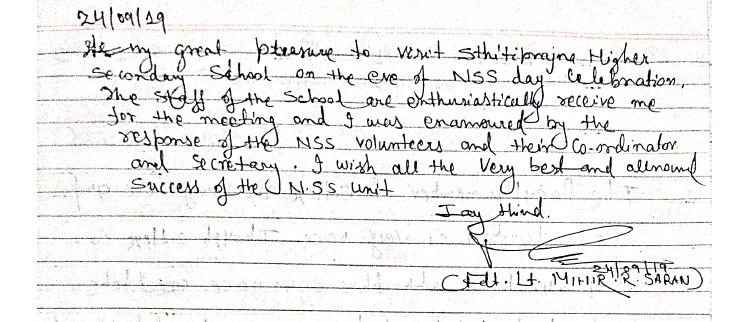 24/09/19
Its my great pleasure to visit Sthitiprajna Higher
Secondary School on the eve of NSS day Celebration.
The Staff of the School are enthusiastically receive me
for the meeting and I was enamoured by the
response of the NSS volunteers and their Co-ordinator
and Secretary. I wish all the Very best and allround
Success of the N.SS unit
Jay Hind.
24/09/19
(Fdt. Lt. MIHIR. R. SARAN)